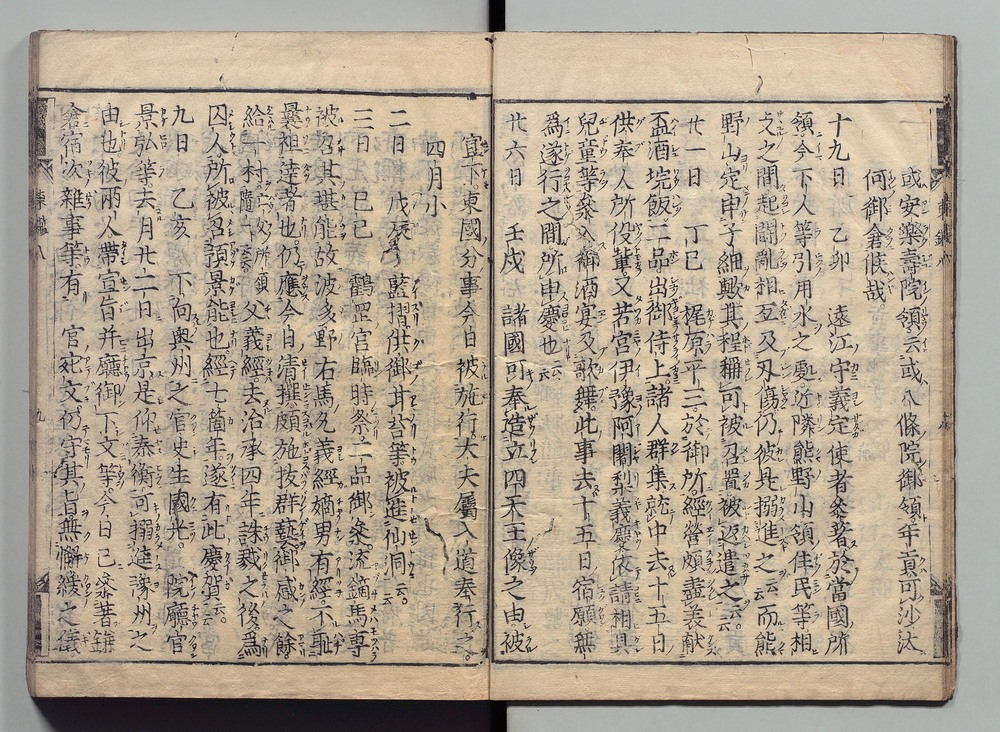 或安樂壽院領云或八條院御領年貢可沙汰
何御倉候哉
十九日 乙卯 遠江守義定使者參著於當國所
領今下人等引用水之處近隣熊野山領住民等相
支之間起鬪亂相互及刃傷仍彼是搦進之云云而熊
野山定申子細歟其程稱可被召置被返遣之云云
廿一日 丁巳 梶原平三於御所經營頗盡美獻
盃酒垸飯二品出御侍上諸人群集就中去十五日
供奉人所役輩又若宮伊豫阿闍梨義慶依請相具
兒童等參入御酒宴及歌舞此事去十五日宿願無
爲遂行之間所申慶也云云
廿六日 壬戌 諸國可奉造立四天王像之由被
宣下東國分事今日被施行大夫屬入道奉行之
四月小
二日 戊辰 藍摺供御甘苔等被進仙洞云云
三日 己巳 鶴罡宮臨時祭二品御參流鏑馬專
被召其堪能故波多野右馬允義經嫡男有經不耻
曩祖達者也仍應今日清撰頗施拔群藝御感之餘
給一村父義經去治承四年誅戮之後爲
囚人所被召預景能也經七箇年遂有此慶賀云云
九日 乙亥 下向奧州之官史生國光院廳官
景弘等去月廿二日出京是仰泰衡可搦進豫州之
由也彼兩人帶宣旨并廳御下文等今日已參著鎌
倉宿次雜事等有 官宛文仍守其旨無懈緩之儀
東鑑八
九